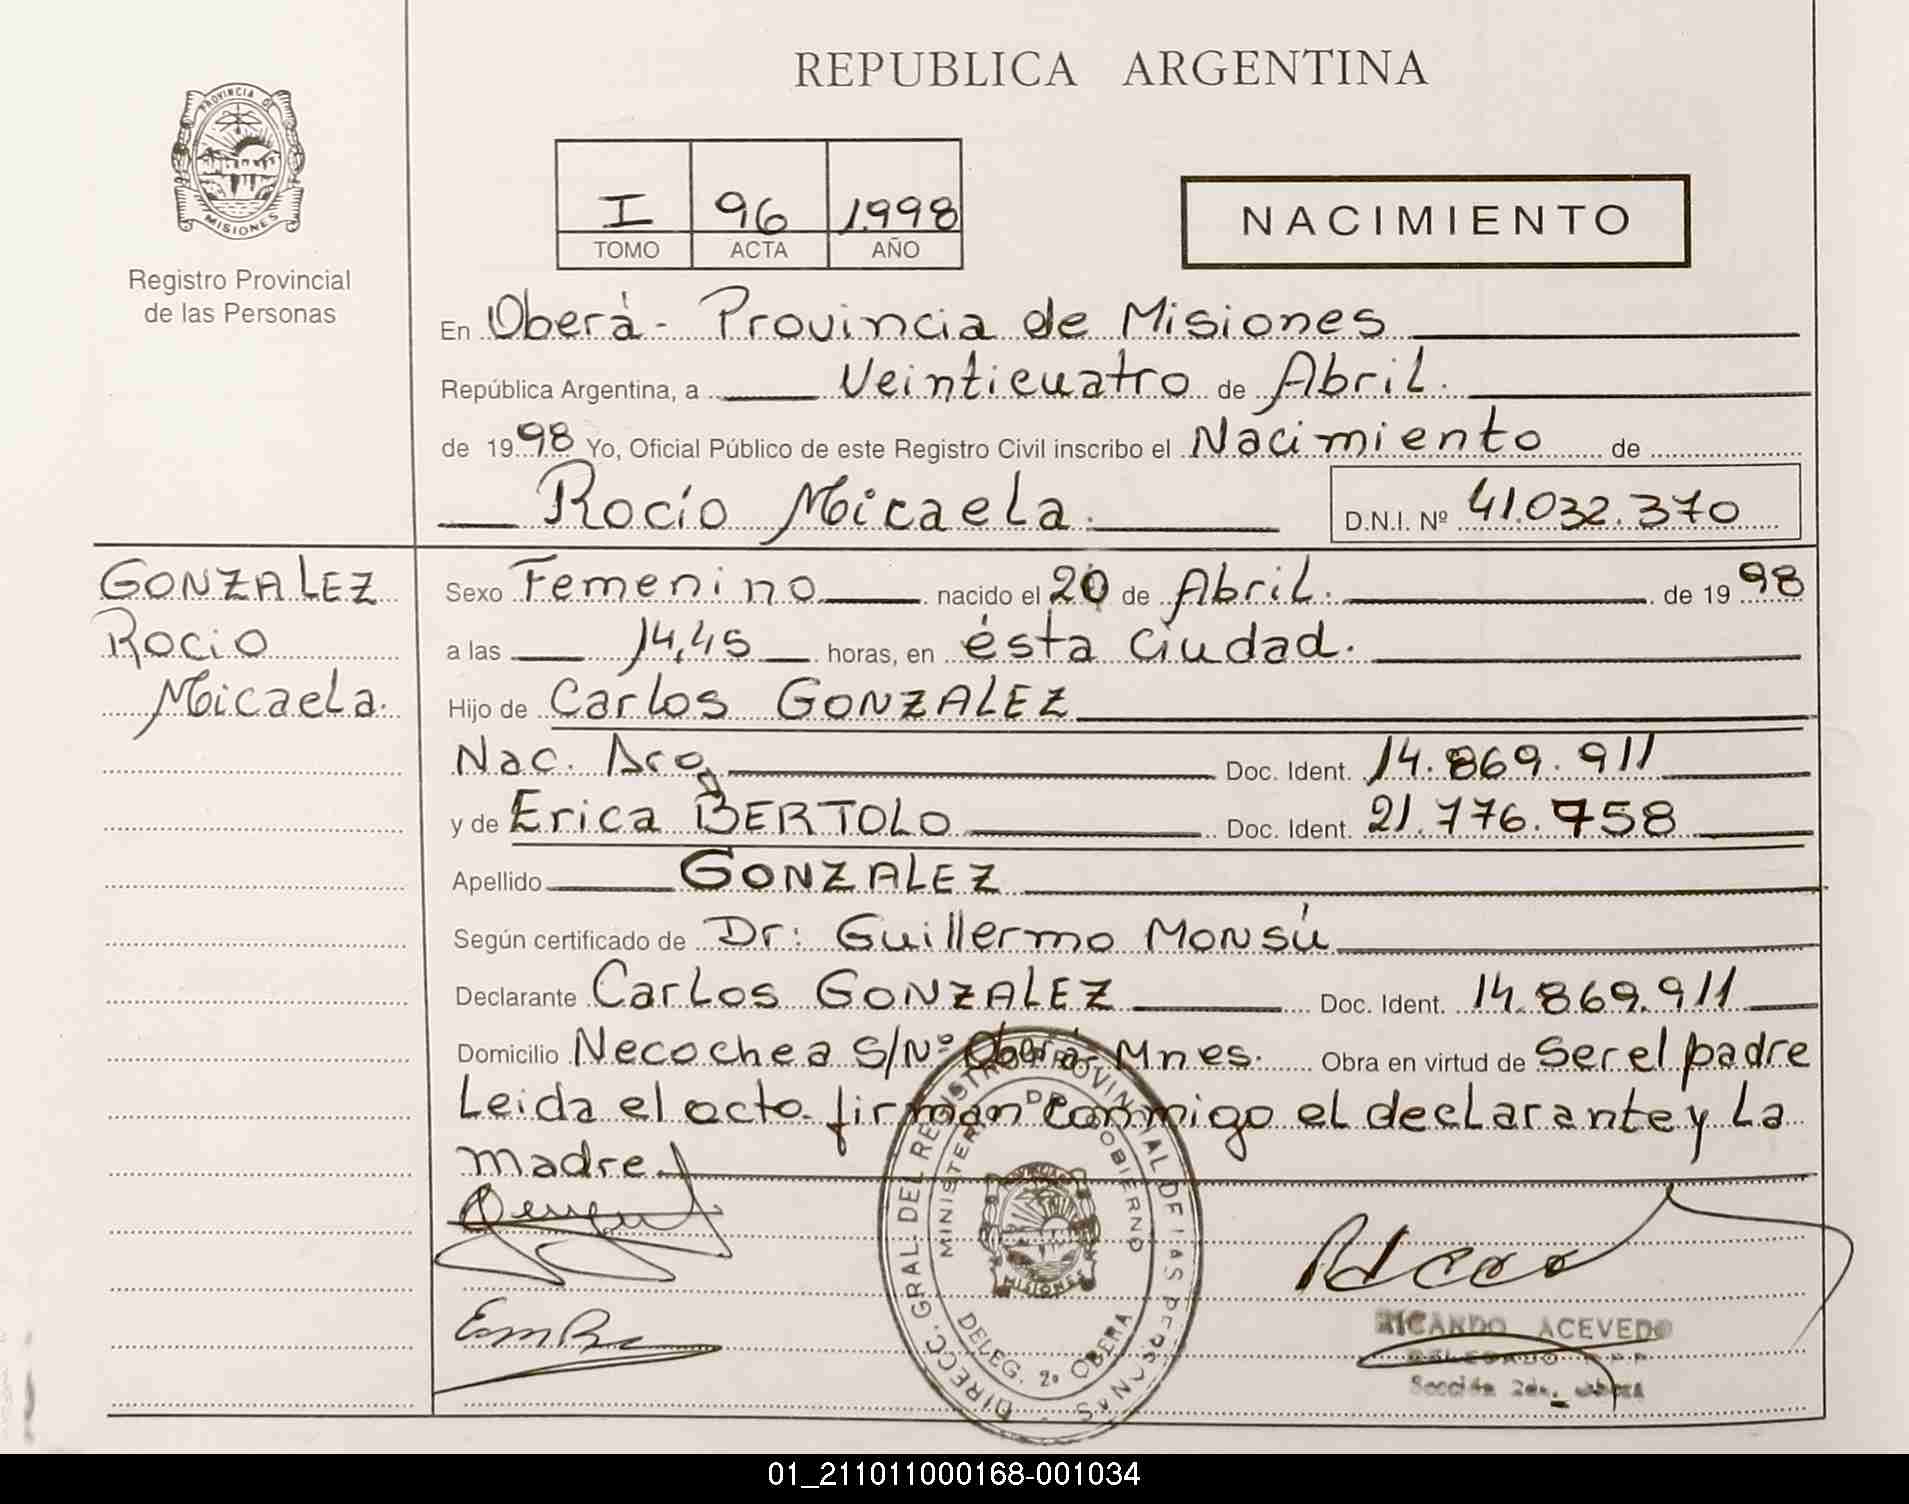 REPUBLICA ARGENTINA
PROVINCIA DE
MISIONES
Registro Provincial
de las Personas
I 96 1.998
TOMO ACTA AÑO
NACIMIENTO
En Oberá- Provincia de Misiones
República Argentina, a Veinticuatro de Abril.
de 1998 Yo, Oficial Público de este Registro Civil inscribo el Nacimiento de
Rocío Micaela. D.N.I. Nº 41.032.370
GONZALEZ
Rocio
Micaela.
Sexo Femenino nacido el 20 de Abril. de 1998
a las 14,45 horas, en ésta Ciudad.
Hijo de Carlos GONZALEZ
Nac. Arg Doc. Ident. 14.869.911
y de Erica BERTOLO Doc. Ident. 21.776.758
Apellido GONZALEZ
Según certificado de Dr: Guillermo MONSÚ
Declarante Carlos GONZALEZ Doc. Ident. 14.869.911
Domicilio Necochea S/Nº Oberá- Mnes. Obra en virtud de Ser el padre
Leida el acto firman conmigo el declarante y la
madre.
DIRECC. GRAL. DEL REGISTRO PROVINCIAL DE LAS PERSONAS
MINISTERIO DE GOBIERNO
MISIONES
DELEG. 2º OBERA
RICARDO ACEVEDO
DELEGADO R.P.P.
Sección 2da. Oberá
01_211011000168-001034